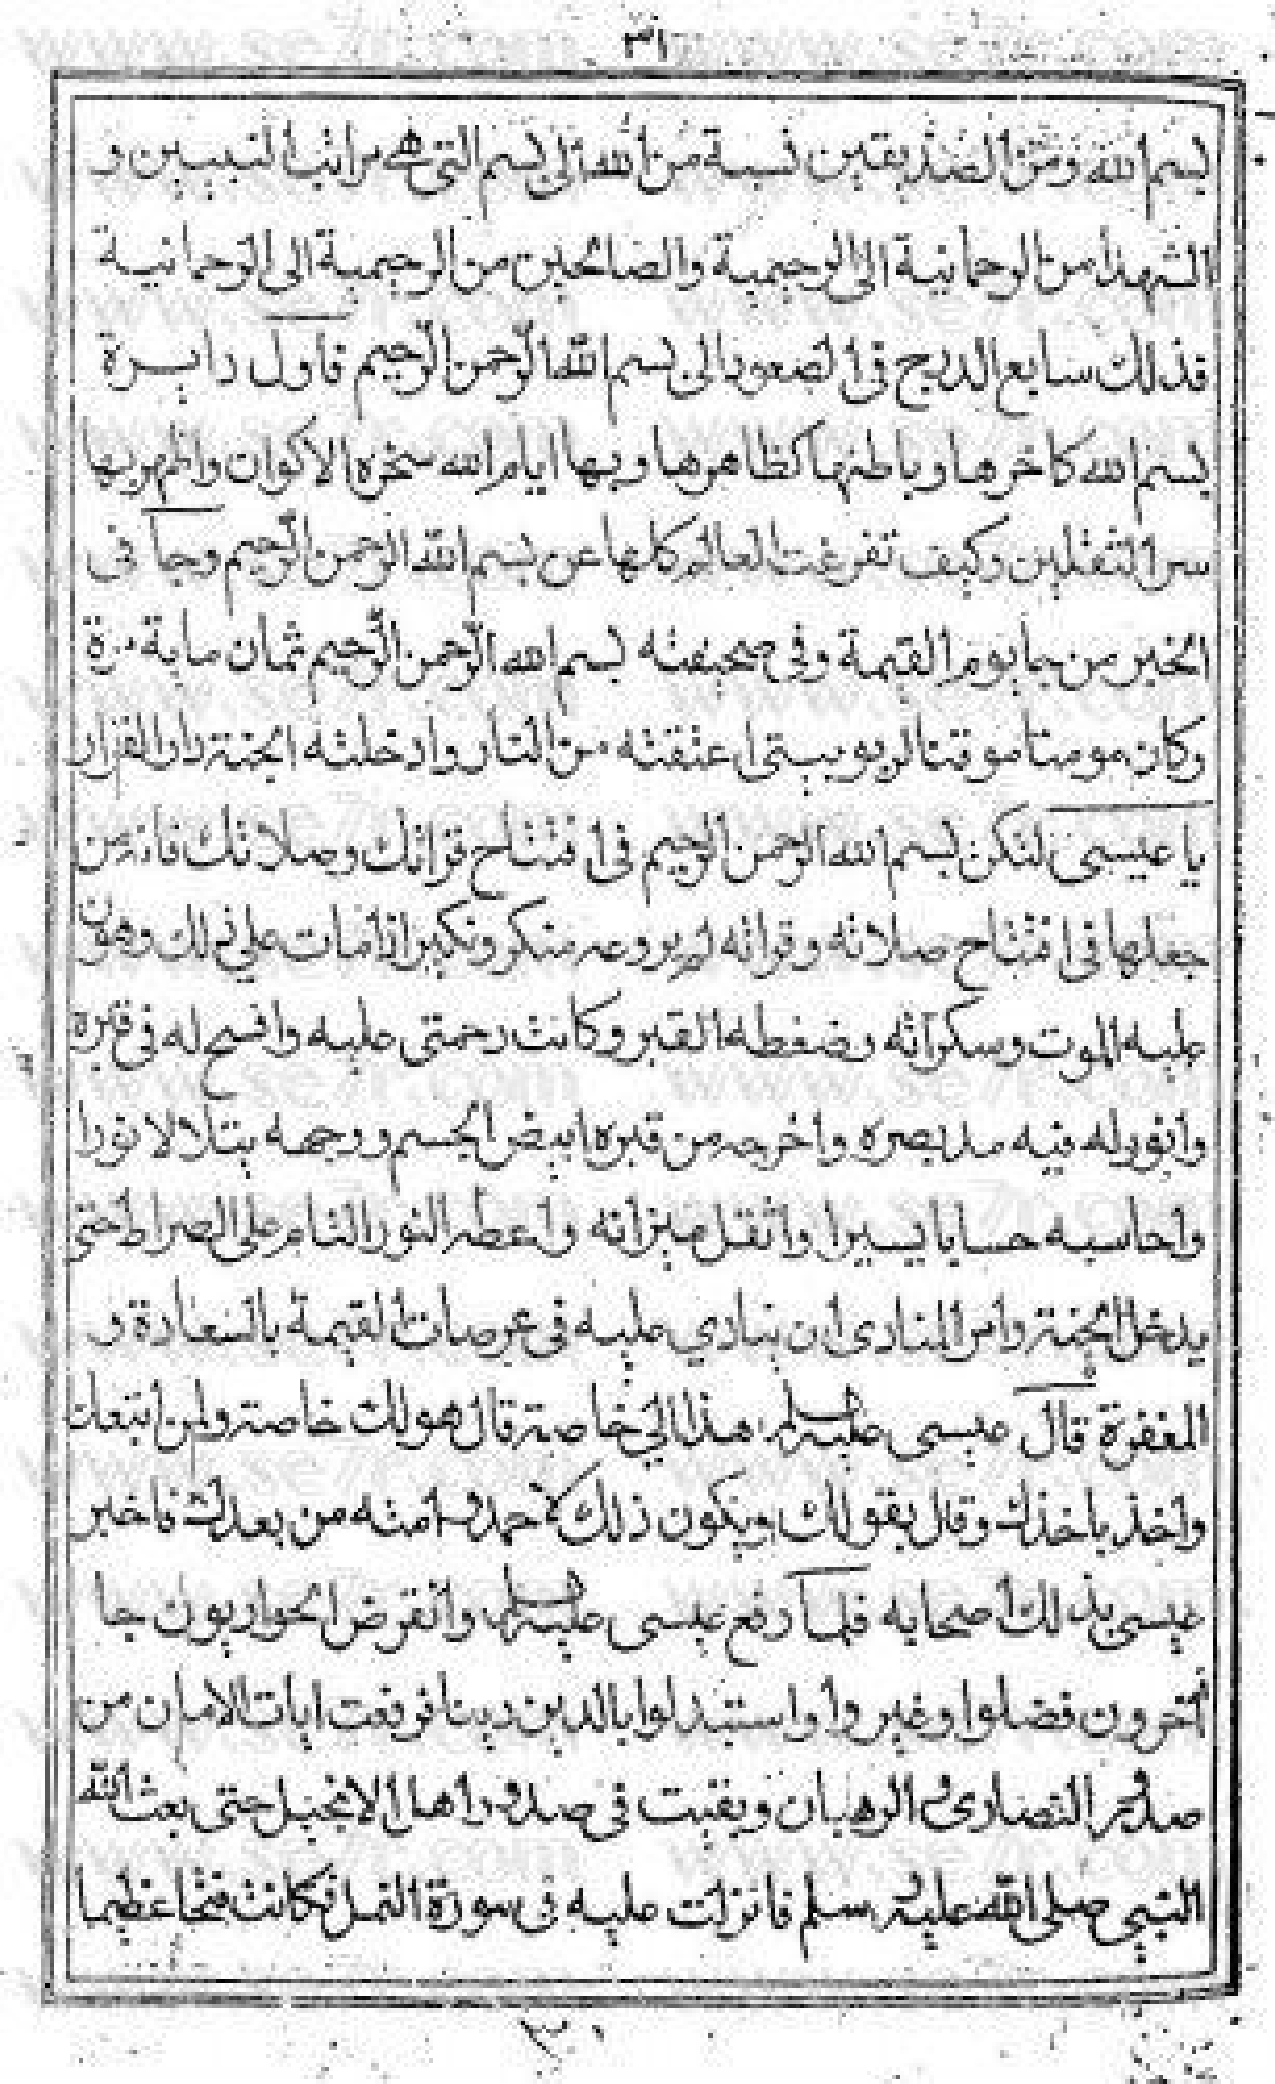 ٣١
بسم الله ومن الصديقين نسبة من الله الى بسم التى هى مراتب النبيين و
الشهدا من الرحمانية الى الرحيمية والصالحين من الرحيمية الى الرحمانية
فذلك سابع الدرج فى الصعود الى بسم الله الرحمن الرحيم فاول دايرة
بسم الله كاخرها وباطنها كظاهرها وبها ايام الله سخرة الاكوان واظهر بها
سر الثقلين وكيف تفرغت العالم كلها عن بسم الله الرحمن الرحيم وجا فى
الخبر من جا يوم القيمة وفى صحيفته بسم الله الرحمن الرحيم ثمان ماية مرة
وكان مومنا موقنا لربوبيتى اعتقته من النار وادخلته الجنة دار القرار
يا عيسى لتكن بسم الله الرحمن الرحيم فى افتتاح قراتك وصلاتك فانه من
جعلها فى افتتاح صلاته وقراته لم يروعه منكر ونكير اذا مات على ذلك وهون
عليه الموت وسكراته وضغطه القبر وكانت رحمتى عليه وافسح له فى قبره
وانور له فيه مد بصره واخرجه من قبره ابيض الجسم ووجهه يتلالا نورا
واحاسبه حسابا يسيرا واثقل ميزانه واعطه النور التام على الصراط حتى
يدخل الجنة وامر المنادى ان ينادي عليه فى عرصات القيمة بالسعادة و
المغفرة قال عيسى عليه السلم هذا لي خاصة قال هو لك خاصة ولمن اتبعك
واخذ باخذك وقال بقولك ويكون ذلك لاحمد وامته من بعدك فاخبر
عيسى بذلك اصحابه فلما رفع عيسى عليه السلم وانقرض الحواريون جا
اخرون فضلوا وغيروا واستبدلوا بالدين دينا فرفعت ايات الامان من
صدور النصارى والرهبان وبقيت فى صدور اهل الانجيل حتى بعث الله
النبي صلى الله عليه وسلم فانزلت عليه فى سورة النمل فكانت فتحا عظيما